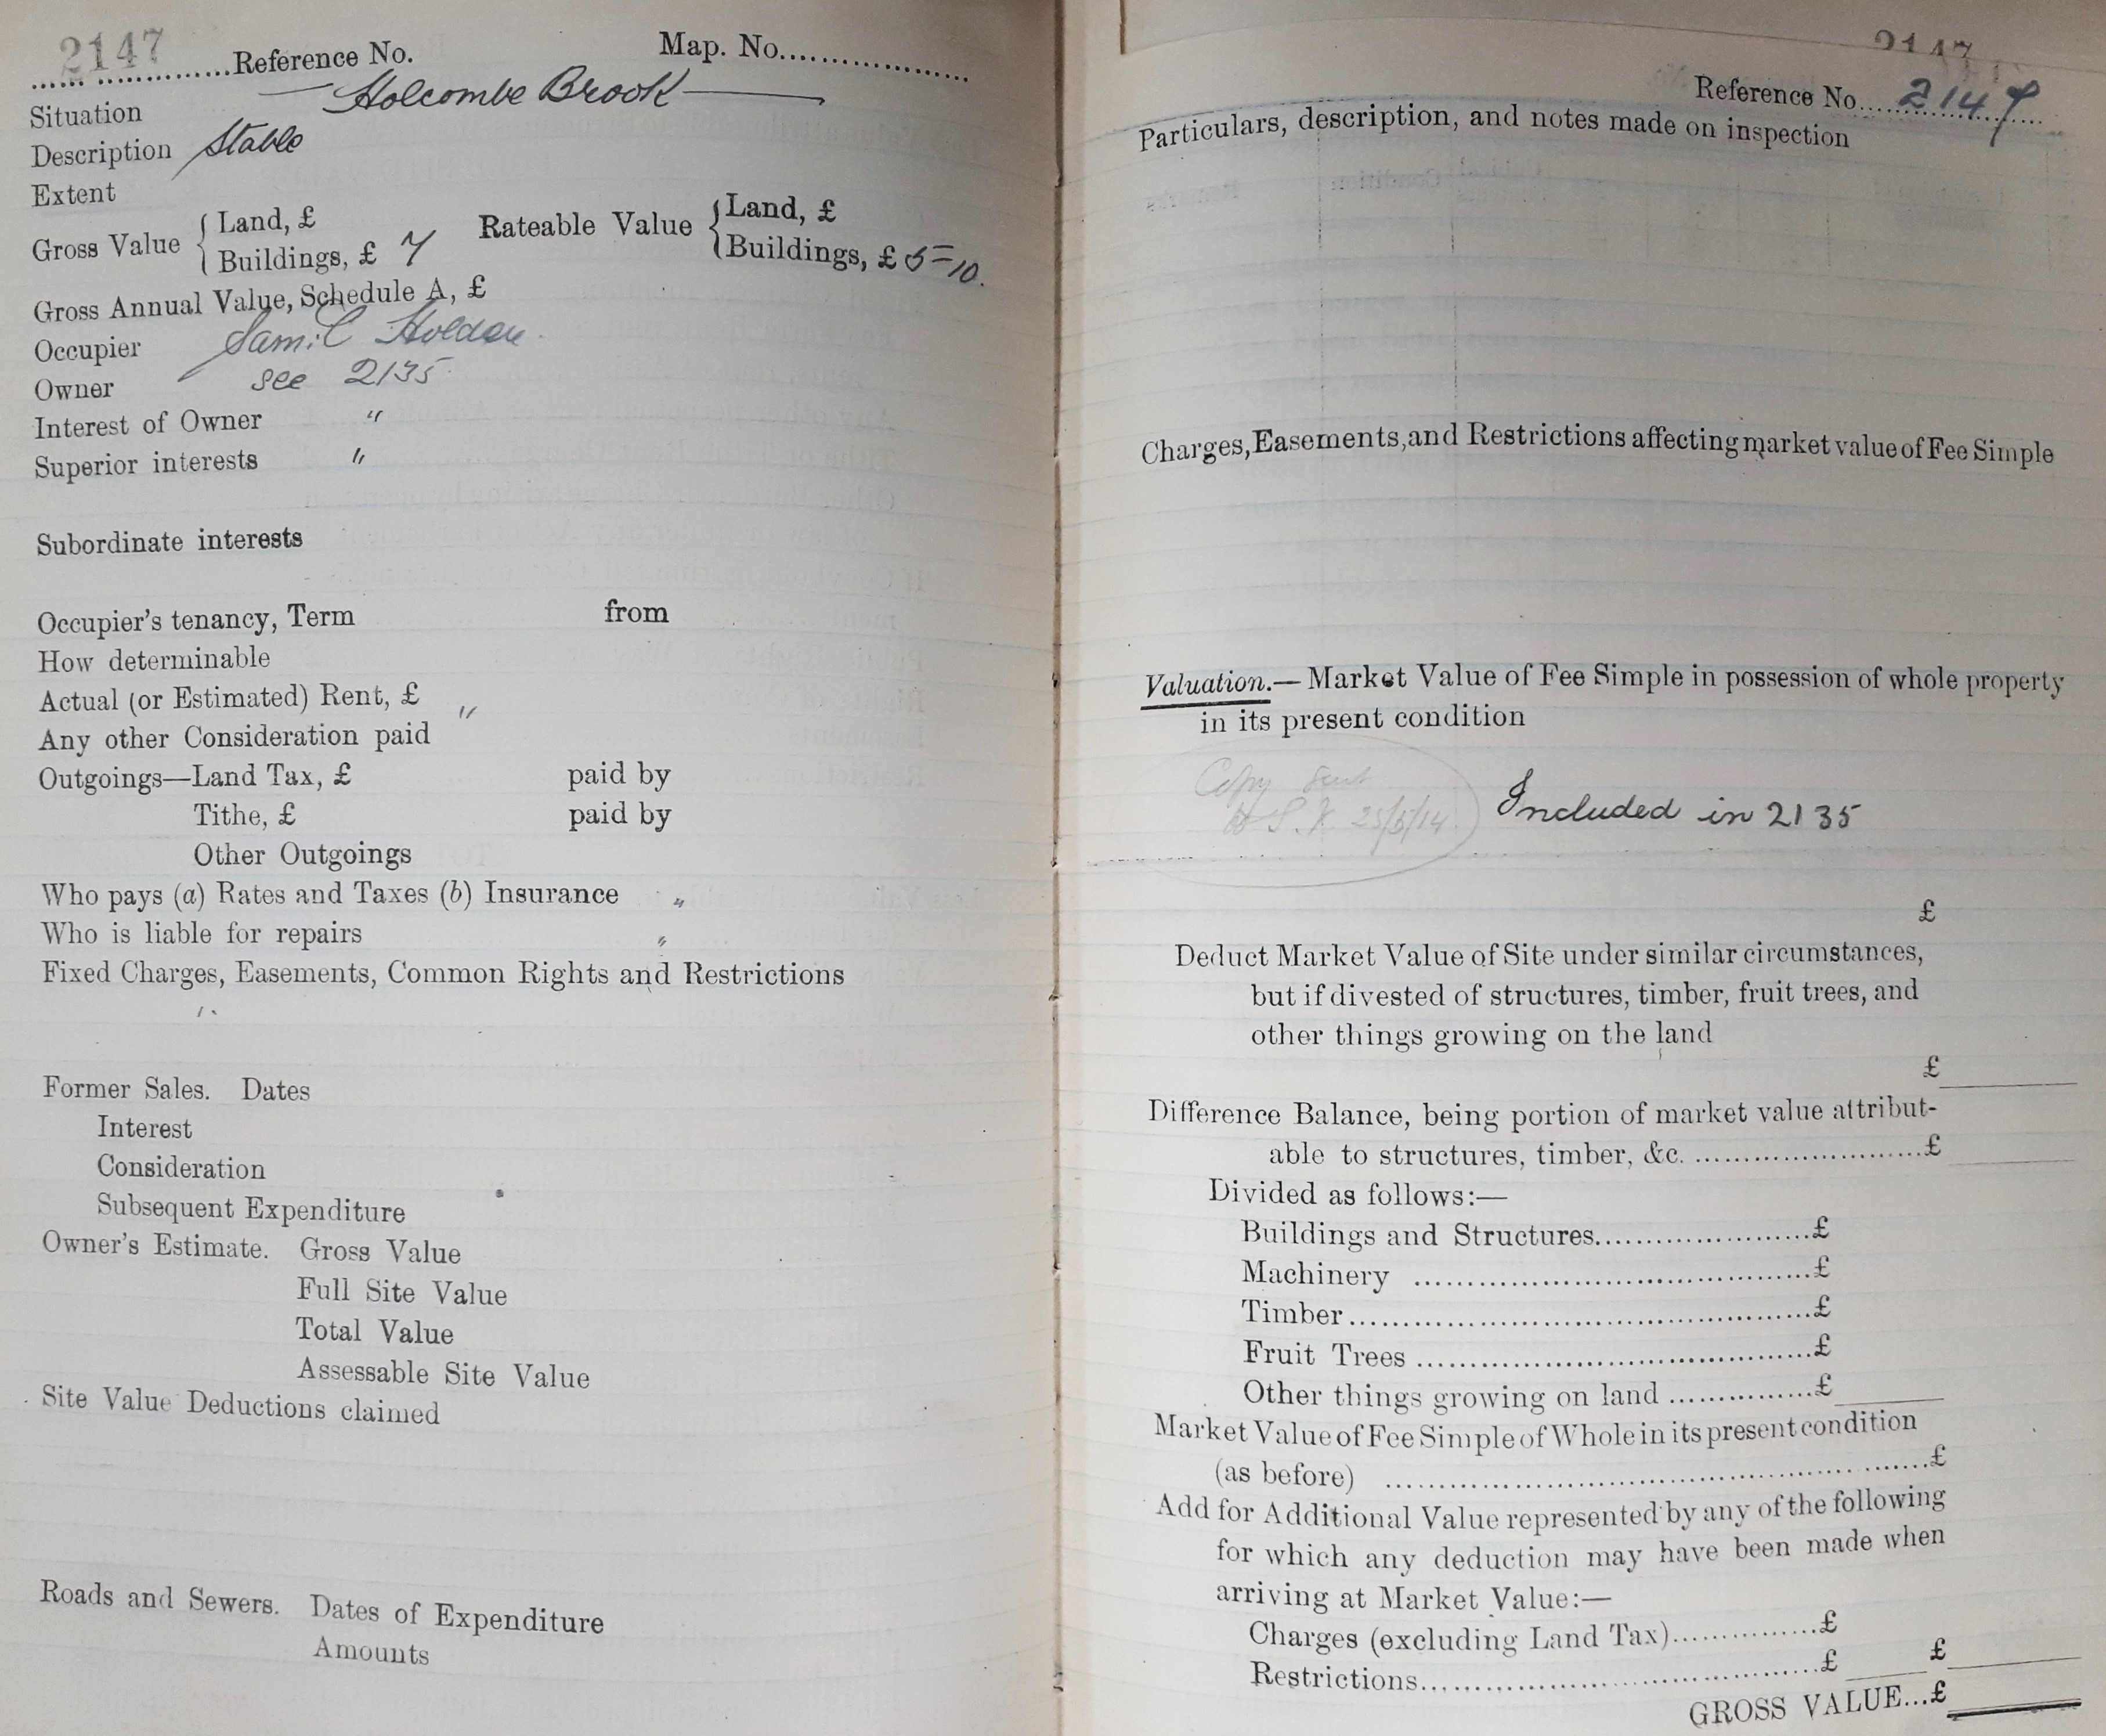 2147
Reference No. Map. No.
Situation Holcombe Brook
Description Stable
Extent
Gross Value { Land, £ Rateable Value { Land, £
Buildings, £ 7 Buildings, £ 5=10.
Gross Annual Value, Schedule A, £
Occupier Saml Holden
Owner see 2135
Interest of Owner "
Superior interests "
Subordinate interests
Occupier's tenancy, Term from
How determinable
Actual (or Estimated) Rent, £ "
Any other Consideration paid
Outgoings—Land Tax, £ paid by
Tithe, £ paid by
Other Outgoings
Who pays (a) Rates and Taxes (b) Insurance "
Who is liable for repairs "
Fixed Charges, Easements, Common Rights and Restrictions
"
Former Sales. Dates
Interest
Consideration
Subsequent Expenditure
Owner's Estimate. Gross Value
Full Site Value
Total Value
Assessable Site Value
Site Value Deductions claimed
Roads and Sewers. Dates of Expenditure
Amounts
2147
Reference No. 2147
Particulars, description, and notes made on inspection
Charges, Easements, and Restrictions affecting market value of Fee Simple
Valuation.—Market Value of Fee Simple in possession of whole property
in its present condition
Copy sent
25/5/14 Included in 2135
£
Deduct Market Value of Site under similar circumstances,
but if divested of structures, timber, fruit trees, and
other things growing on the land
£
Difference Balance, being portion of market value attribut-
able to structures, timber, &c. £
Divided as follows:—
Buildings and Structures £
Machinery £
Timber £
Fruit Trees £
Other things growing on land £
Market Value of Fee Simple of Whole in its present condition
(as before) £
Add for Additional Value represented by any of the following
for which any deduction may have been made when
arriving at Market Value:—
Charges (excluding Land Tax) £
Restrictions £ £
GROSS VALUE...£